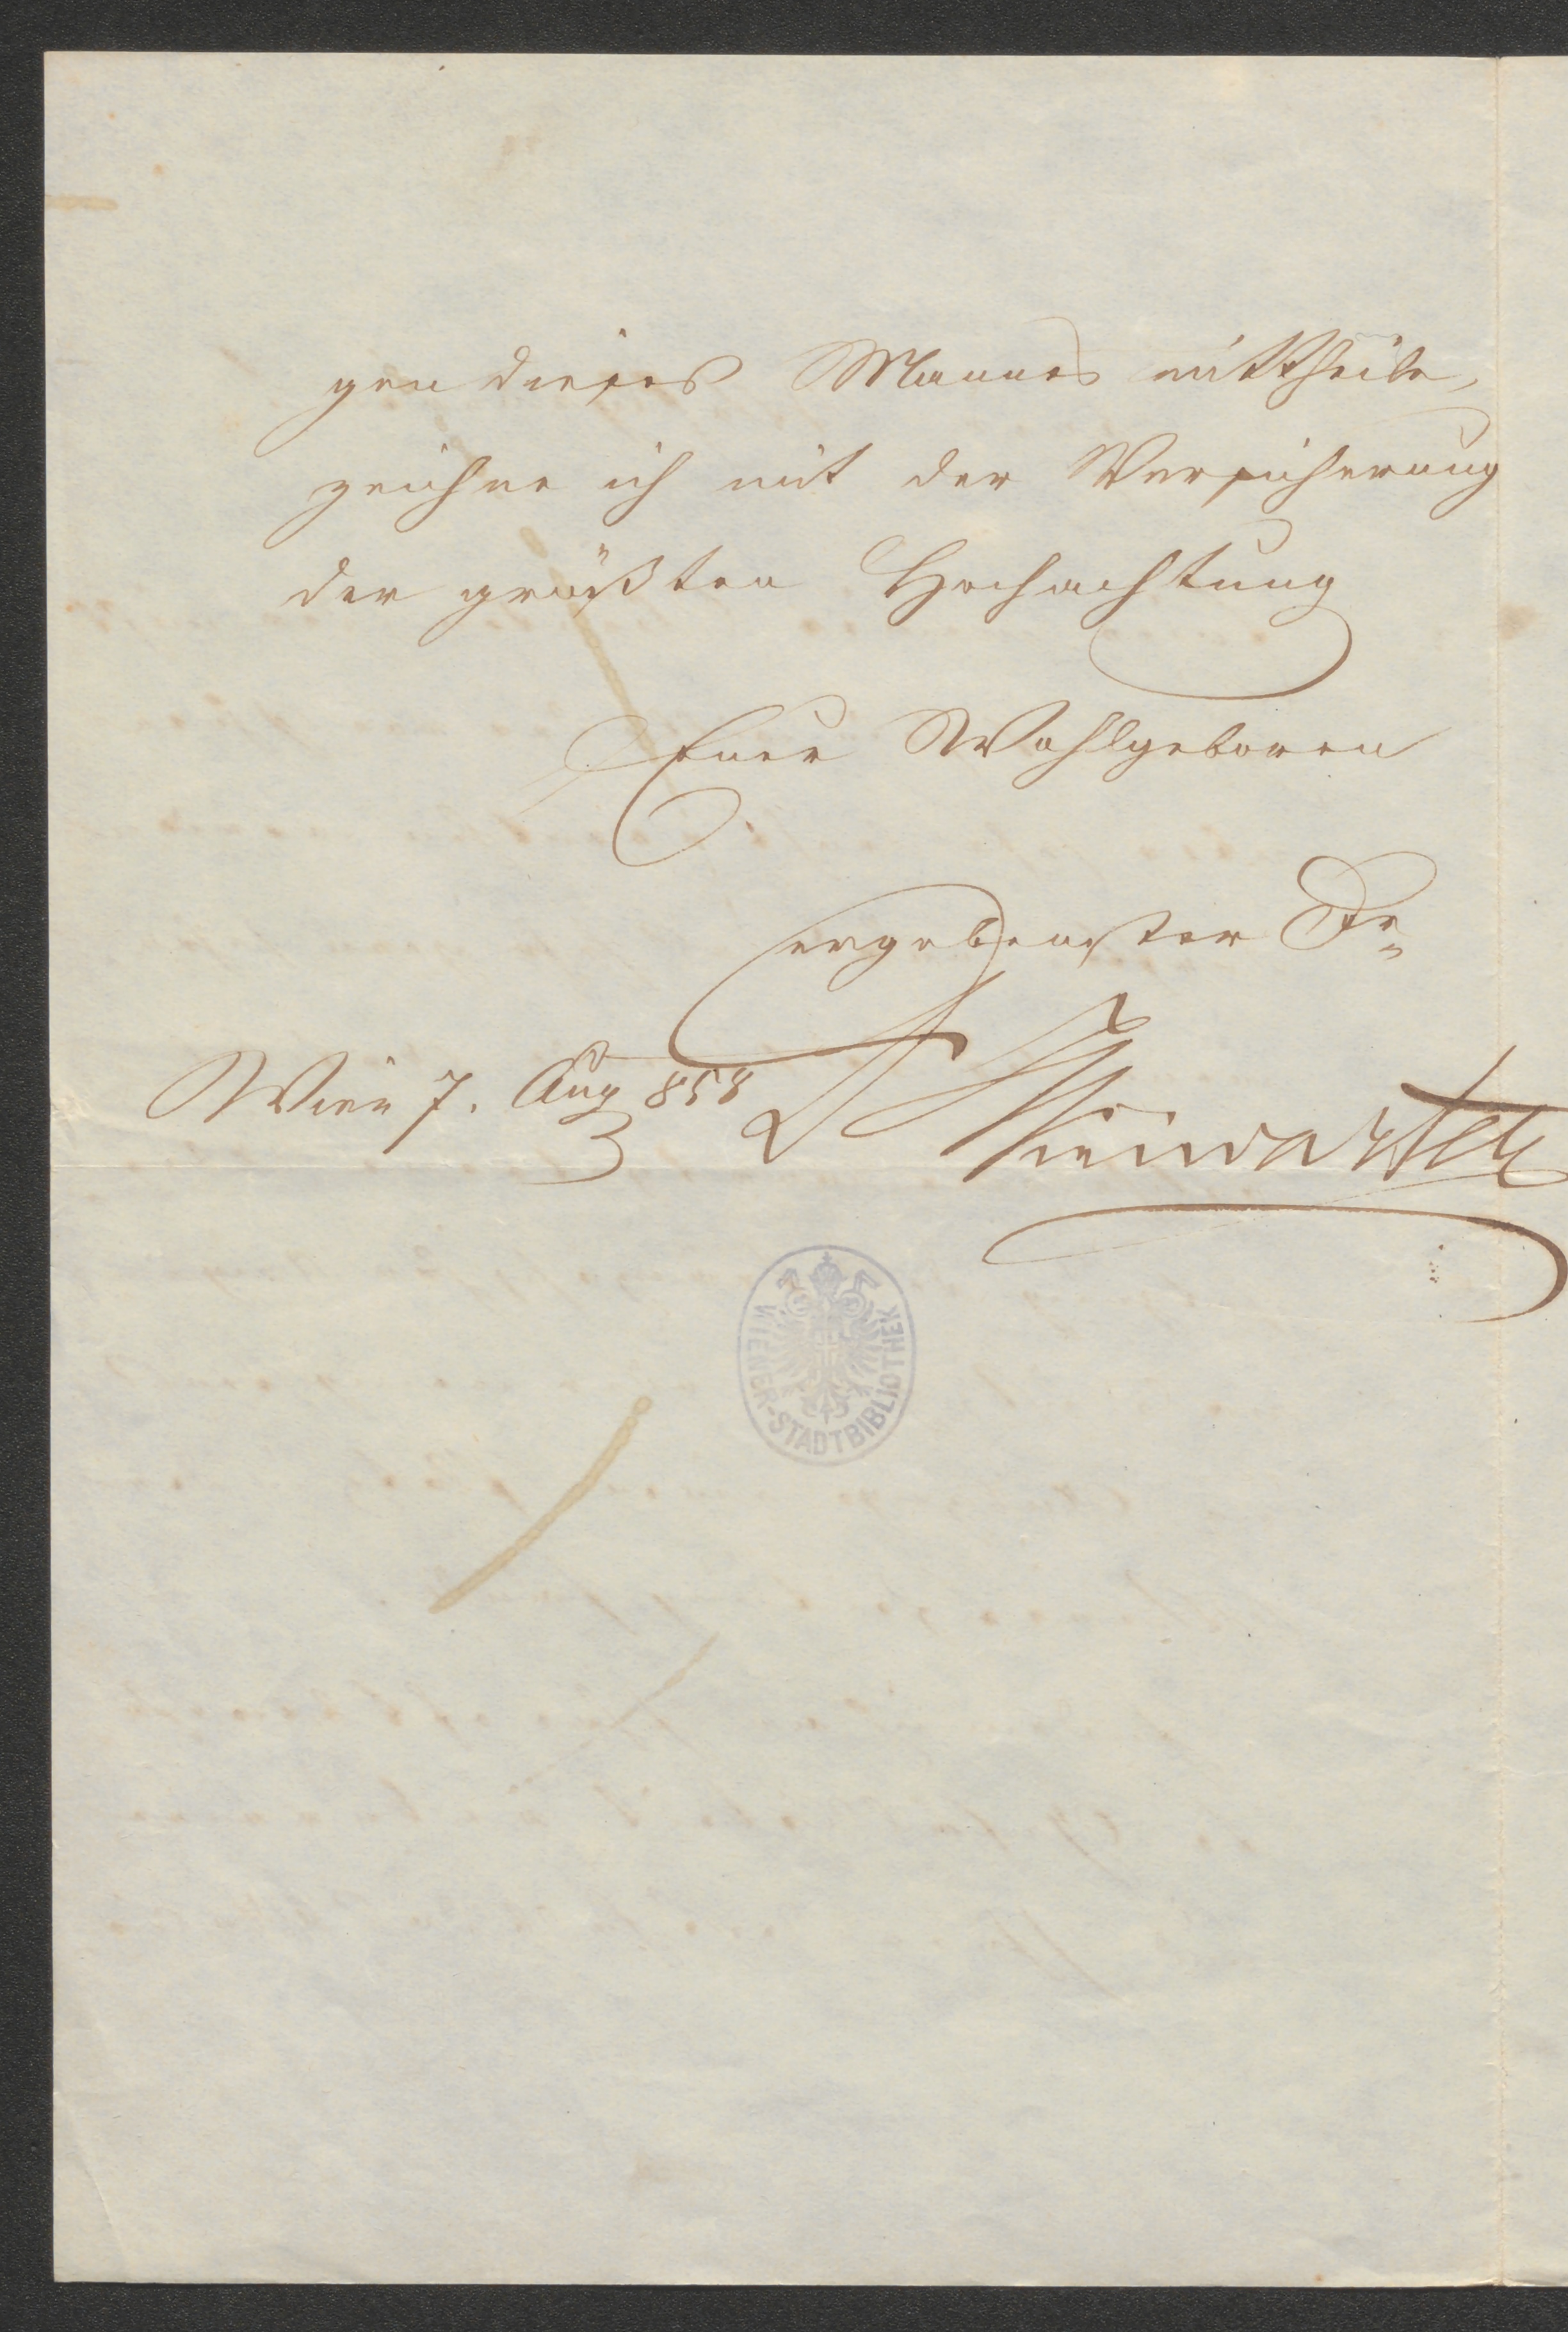 gen dieses Mannes mittheile,
zeichne ich mit der Versicherung
der größten Hochachtung
Euer Wohlgeboren
ergebenster Dr
Wien 7. Aug 858
WIENER-STADTBIBLIOTHEK